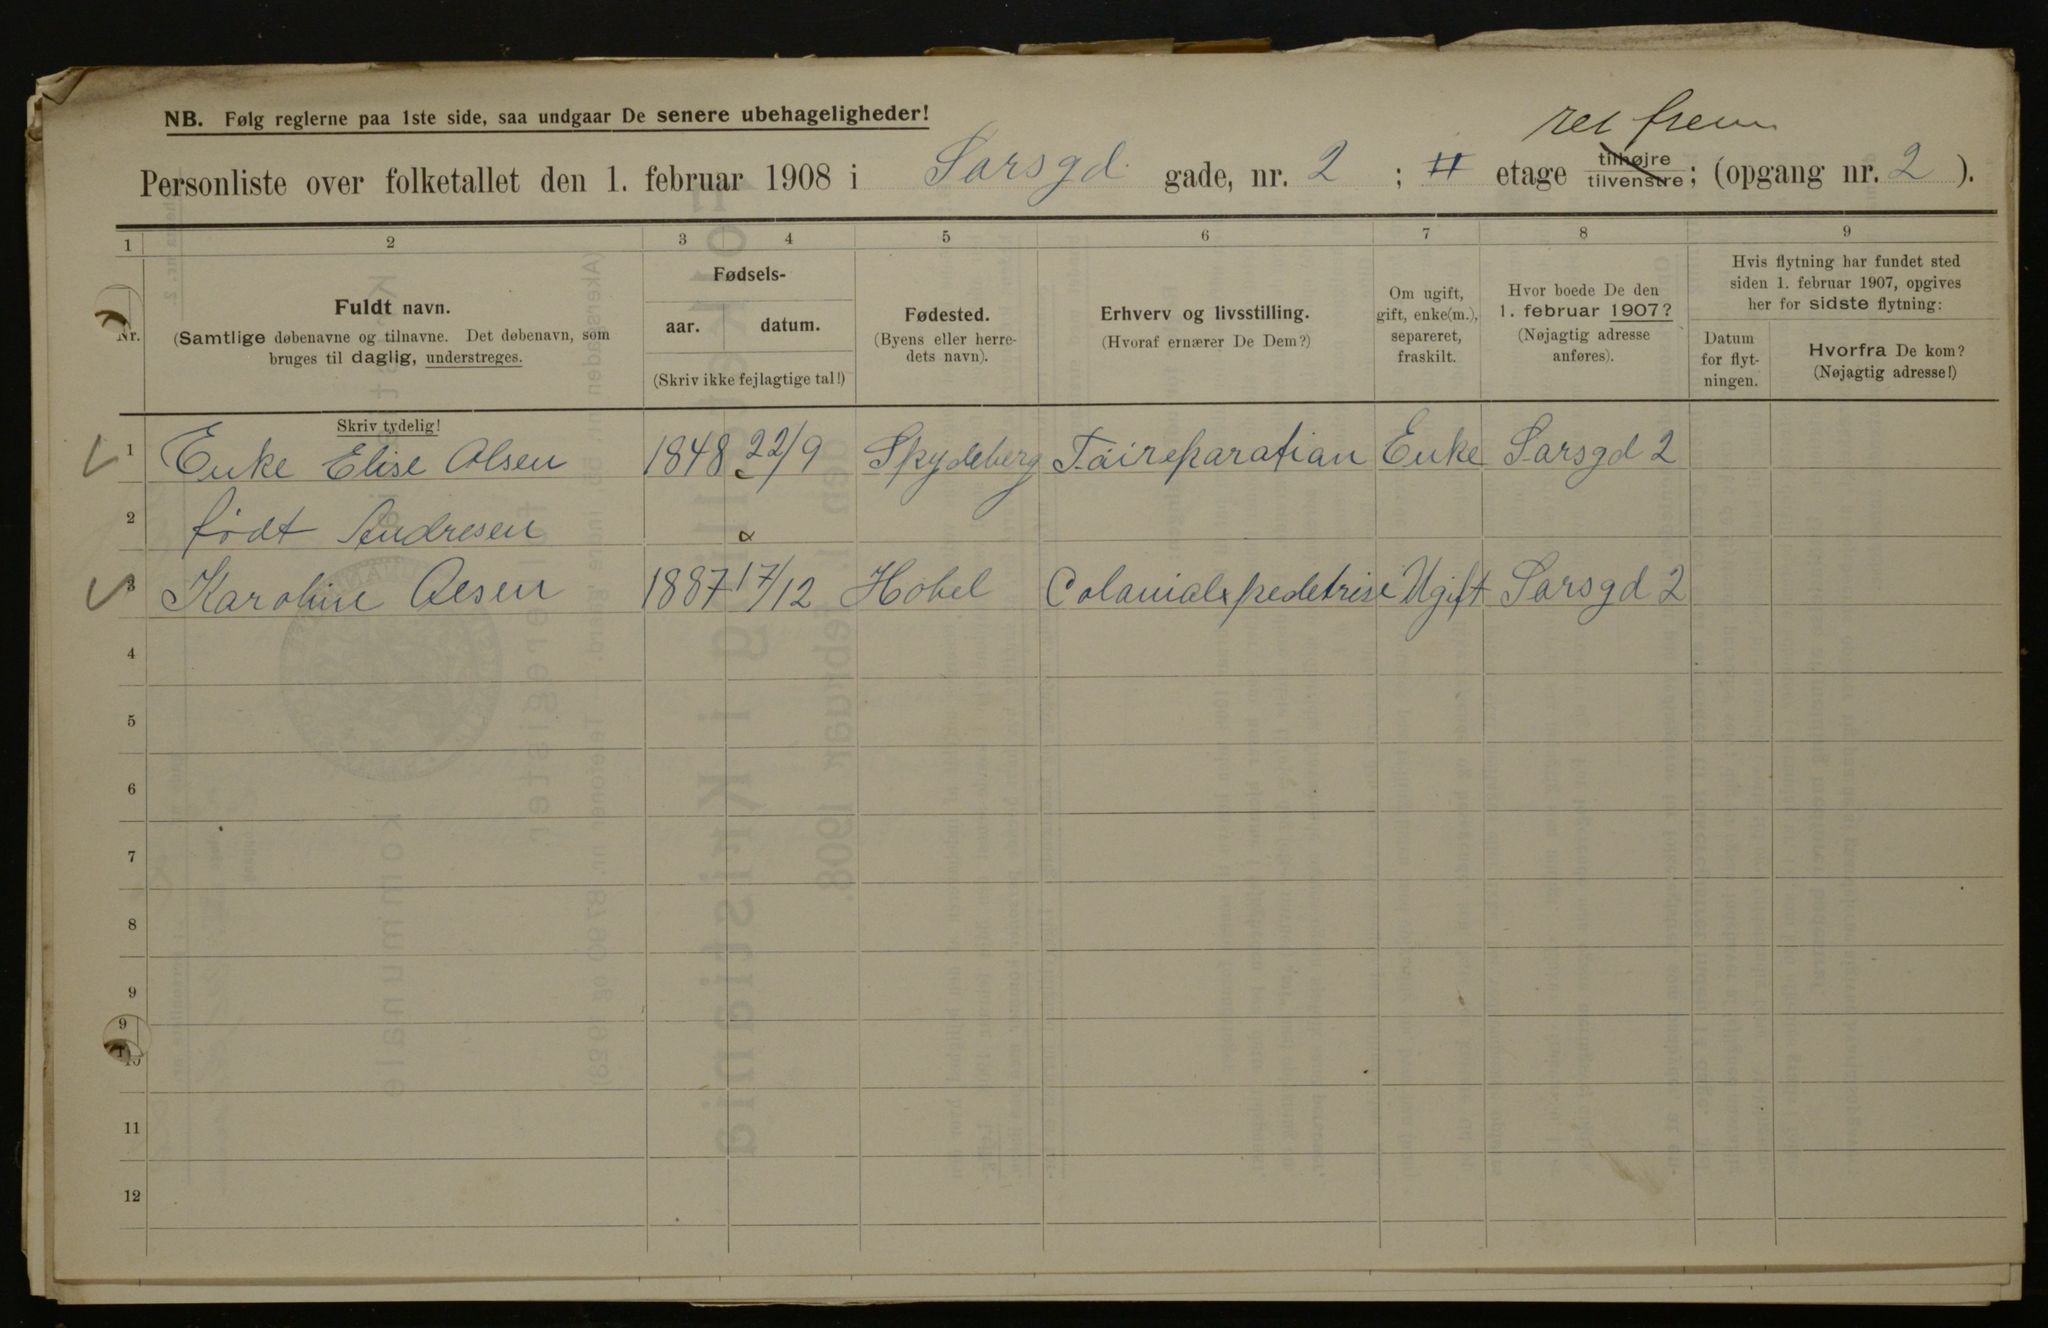 ret frem
NB. Følg reglerne paa 1ste side, saa undgaar De senere ubehageligheder!
Personliste over folketallet den 1. februar 1908 i Sarsgd. gade, nr. 2 ; II etage tilhøjre tilvenstre ; (opgang nr. 2 ).
1 2 3 4 5 6 7 8 9
Nr.
Fuldt navn.
(Samtlige døbenavne og tilnavne. Det døbenavn, som
bruges til daglig, understreges.
Fødsels-
aar. datum.
(Skriv ikke fejlagtige tal!)
Fødested.
(Byens eller herre-
dets navn).
Erhverv og livsstilling.
(Hvoraf ernærer De Dem?)
Om ugift,
gift, enke(m.),
separeret,
fraskilt.
Hvor boede De den
1. februar 1907?
(Nøjagtig adresse
anføres).
Hvis flytning har fundet sted
siden 1. februar 1907, opgives
her for sidste flytning:
Datum
for flyt-
ningen.
Hvorfra De kom?
(Nøjagtig adresse!)
Skriv tydelig!
1 Enke Elise Olsen 1848 22/9 Skydeberg Tøireparation Enke Sarsgd 2
2 født Andresen
3 Karoline Olsen 1887 17/12 Hobel Colonialexpedetrise Ugift Sarsgd 2
4
5
6
7
8
9
9
10
11
12